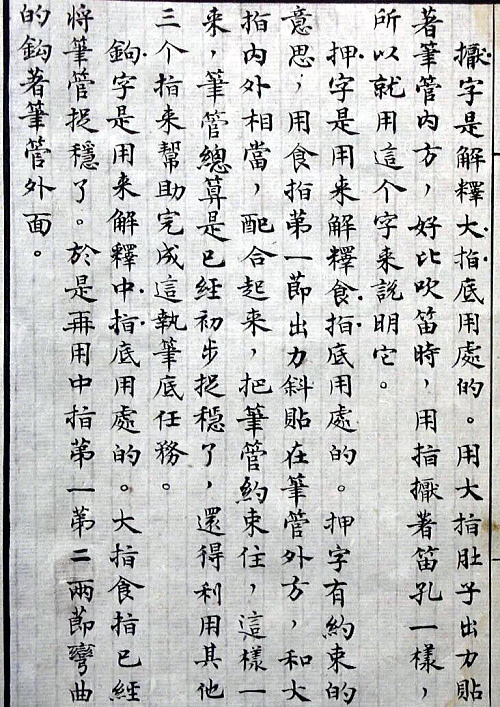 擫字是解釋大指底用處的。用大指肚子出力貼
著筆管内方，好比吹笛時，用指擫著笛孔一樣，
所以就用這个字来説明它。
押字是用来解釋食指底用處的。押字有約束的
意思，用食指第一節出力斜貼在筆管外方，和大
指内外相當，配合起来，把筆管約束住，這樣一
来，筆管總算是已經初步捉穩了，還得利用其他
三个指来幫助完成這執筆底任務。
鉤字是用来解釋中指底用處的。大指食指已經
將筆管捉穩了。於是再用中指第一第二兩節彎曲
的鉤著筆管外面。